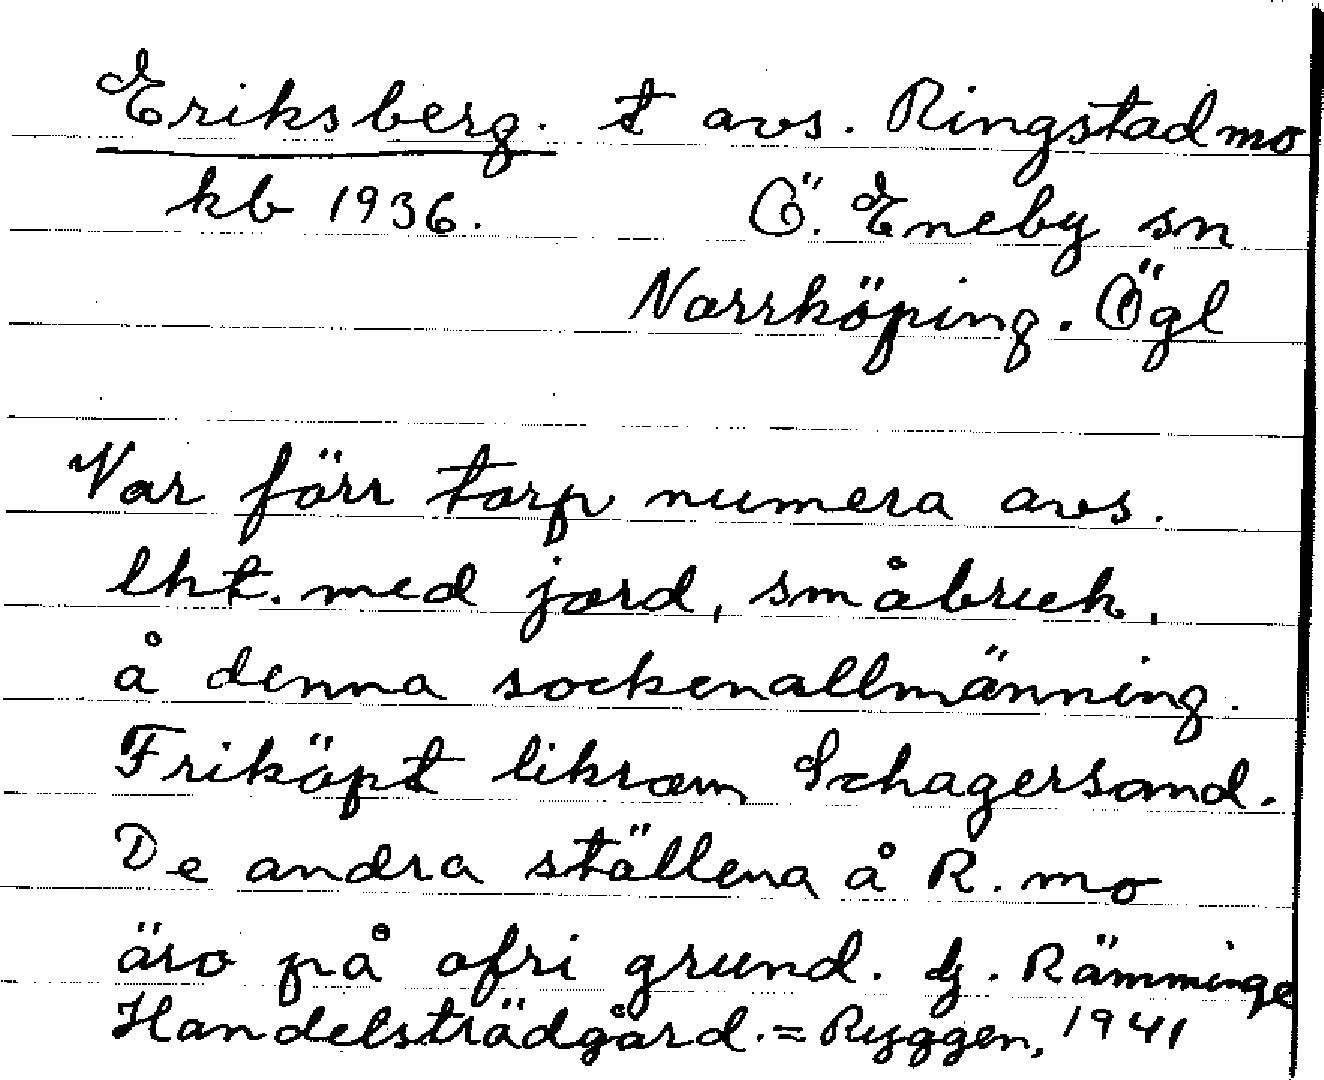 Eriksberg. t avs. Ringstadmo
kb 1936. Ö. Eneby sn
Norrköping. Ögl
Var förr torp numera avs.
lht. med jord, småbruk,
å denna sockenallmänning.
Friköpt liksom Schagersand.
De andra ställena å R. mo
äro på ofri grund. Jfr. Rämminge
Handelsträdgård. = Ryggen, 1941